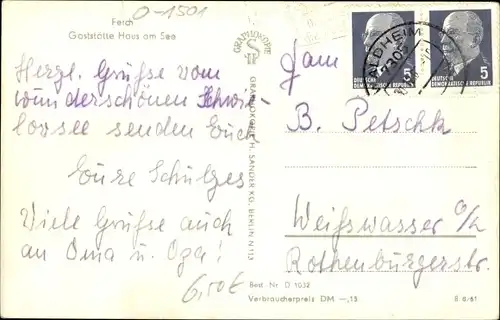 Ferch
Gaststätte Haus am See
O-1501
Herzl. Grüße vom
wunderschönen Schwie-
lowsee senden Euch
Eure Schulzes
Viele Grüße auch
an Oma u. Opa!
6,50 €
GRAPHOKOPIE
GRAPHOKOPIE H. SANDER KG. BERLIN N 113
Best.-Nr. D 1032
Verbraucherpreis DM –,15
WALDHEIM
DEUTSCHE
DEMOKRATISCHE REPUBLIK
5
DEUTSCHE
DEMOKRATISCHE REPUBLIK
5
Fam
B. Petschk
Weißwasser O/L
Rothenburgerstr.